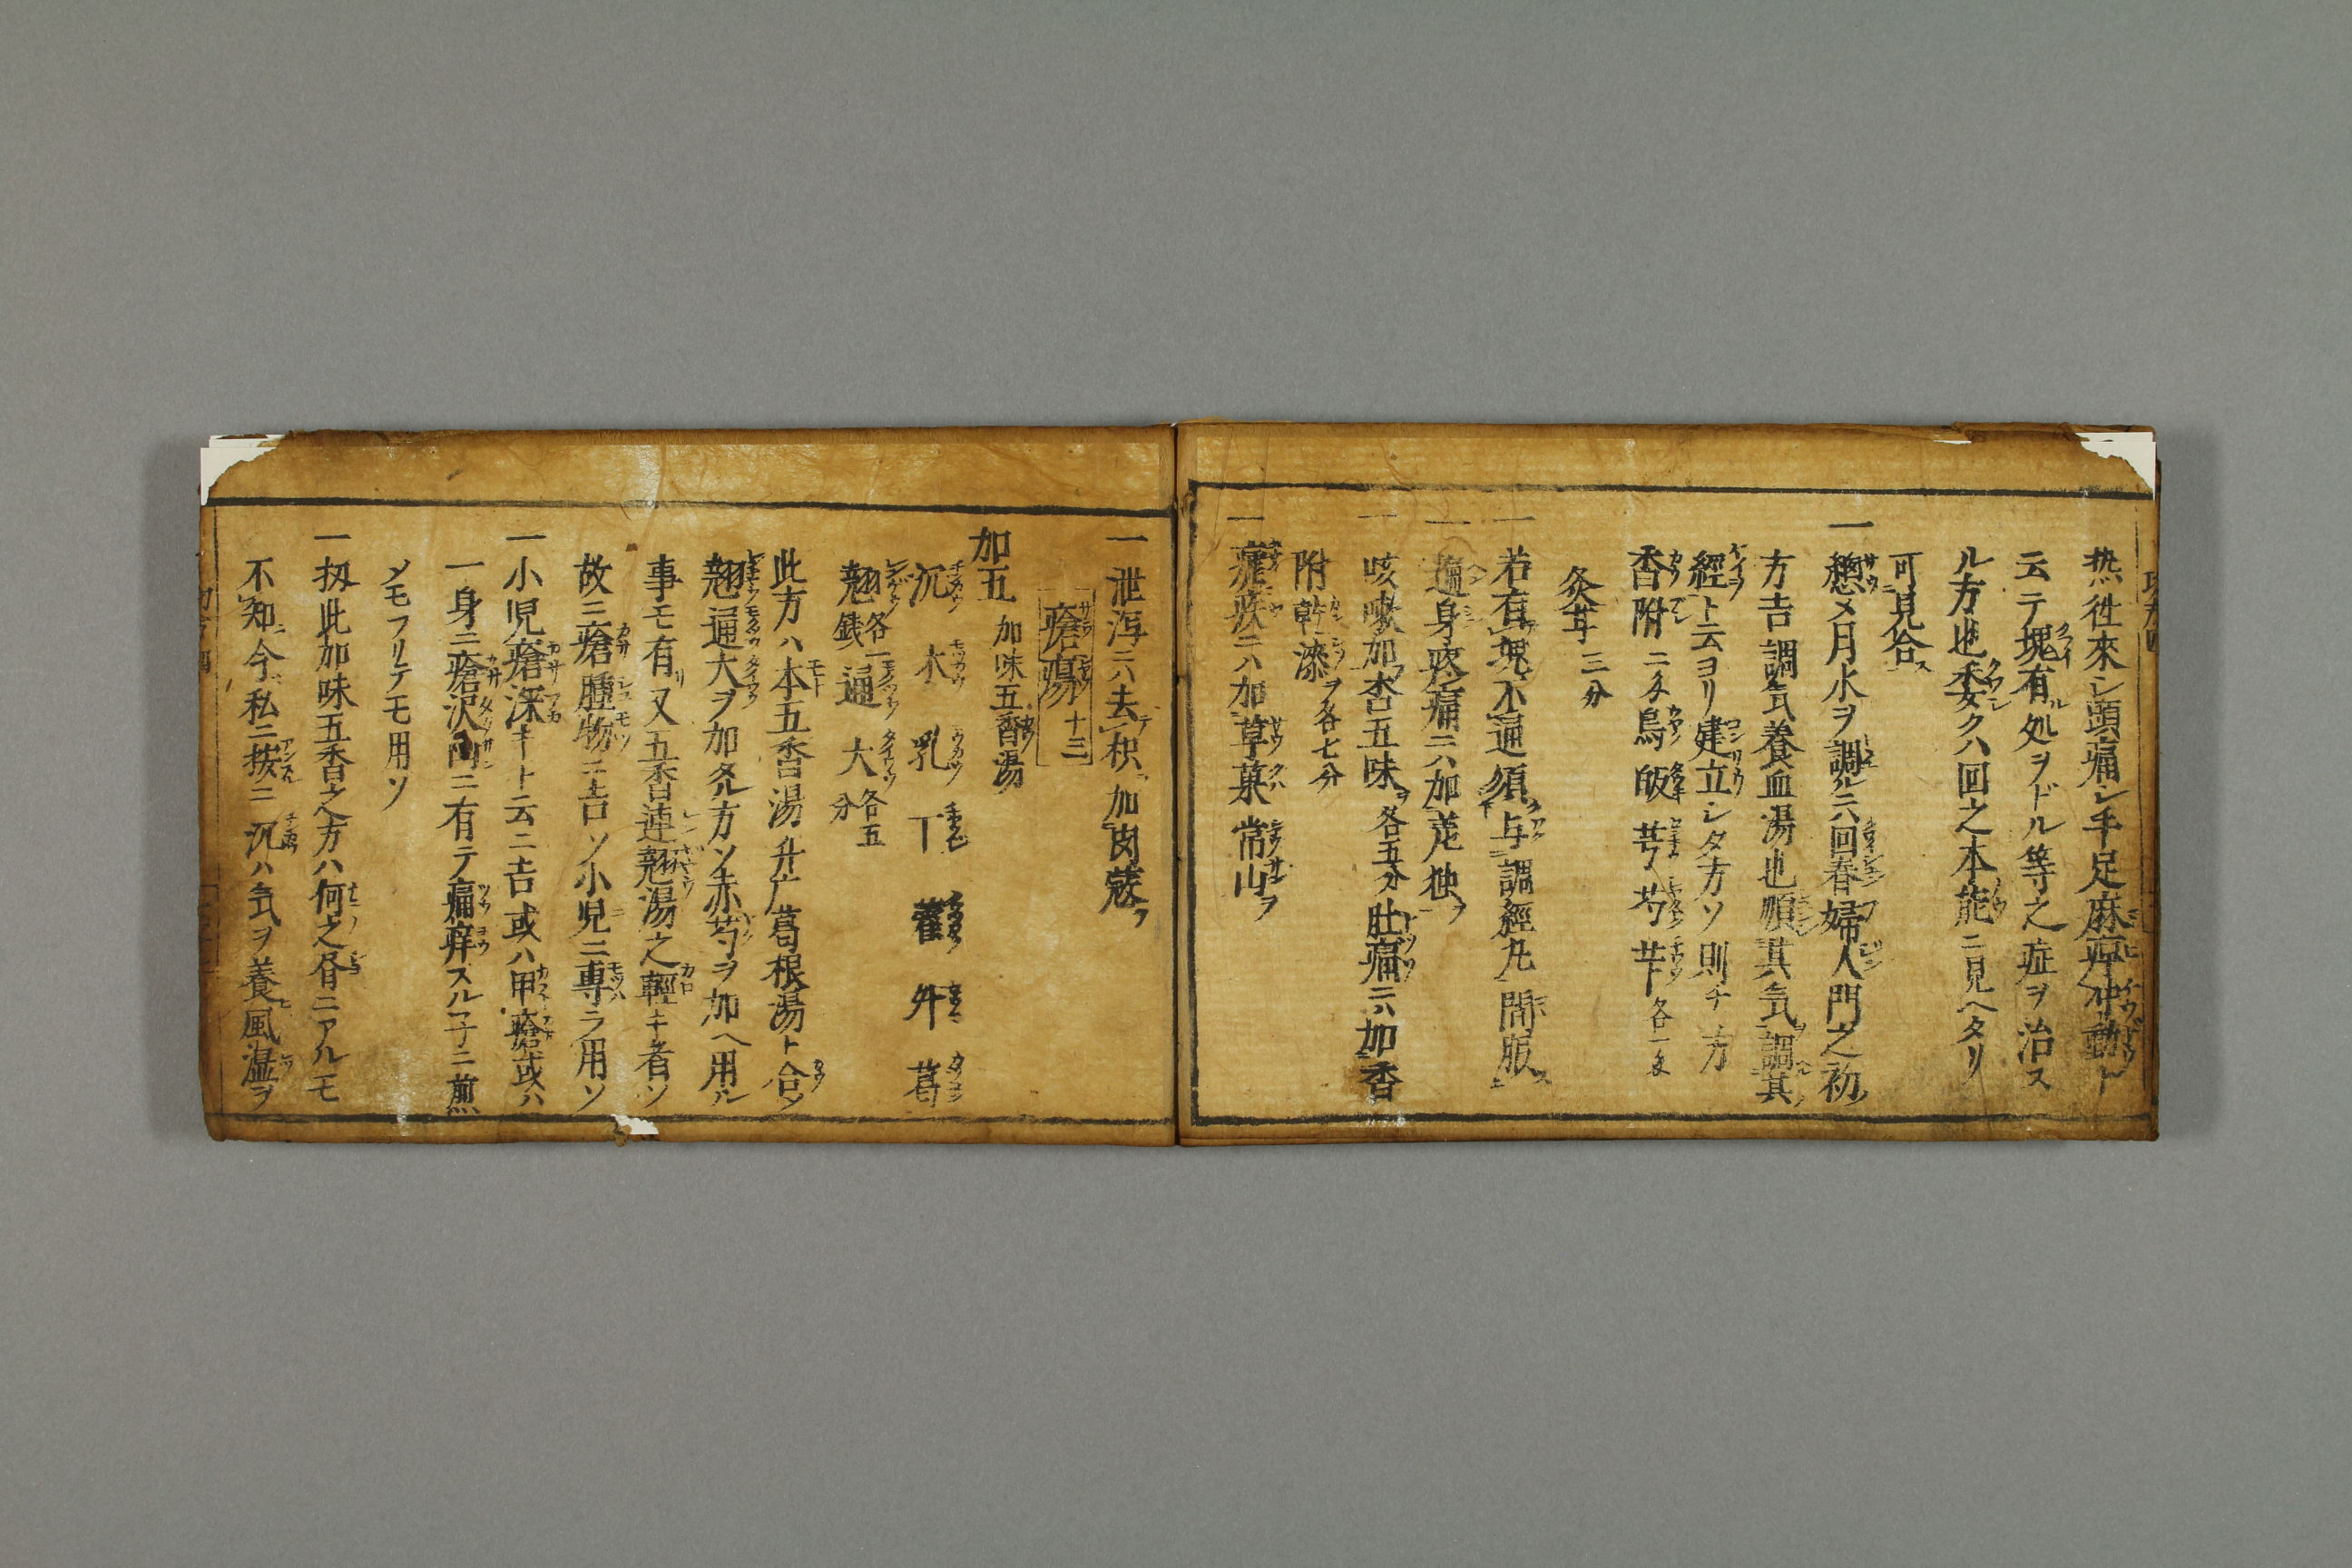 热徃來シ頭痛シ手足麻痺冲動ト
云テ塊有ル処ヲドル等之症ヲ治ス
ル方也委クハ回之本䏻ニ見ヘタリ
可見合ス
一 總メ月水ヲ調ルニハ回春婦人門之初ノ
方吉調気養血湯也順其気調其
經ト云ヨリ建立シタ方ソ則チ方
香附 烏 皈 芎 芍 芐 各一
灸甘三分
一 若有塊不通須与調經丸間服ス
一 遍身疼痛ニハ加羗独ヲ
一 咳嗽加杏五味ヲ各五分肚痛ニハ加香
附乾漆ヲ各七分
一 瘧疾ニハ加草菓常山ヲ
一 泄瀉ニハ去テ枳加肉蔲ヲ
瘡瘍 十三
加五 加味五香湯
沉 木 乳 丁 藿 外 葛
翹各一錢 通 大各五分
此方ハ本五香湯升广葛根湯ト合メ
翹通大ヲ加タル方ソ赤芍ヲ加ヘ用ル
事モ有リ又五香連翹湯之輕キ者ソ
故ニ瘡腫物ニ吉ソ小児ニ専ラ用ソ
一 小児瘡深キト云ニ吉或ハ甲瘡或ハ
一身ニ瘡沢山ニ有テ痛痒スル子ニ煎
メモフリテモ用ソ
一 扨此加味五香之方ハ何之屑ニアルモ
不知今私ニ按ニ沉ハ気ヲ養風湿ヲ